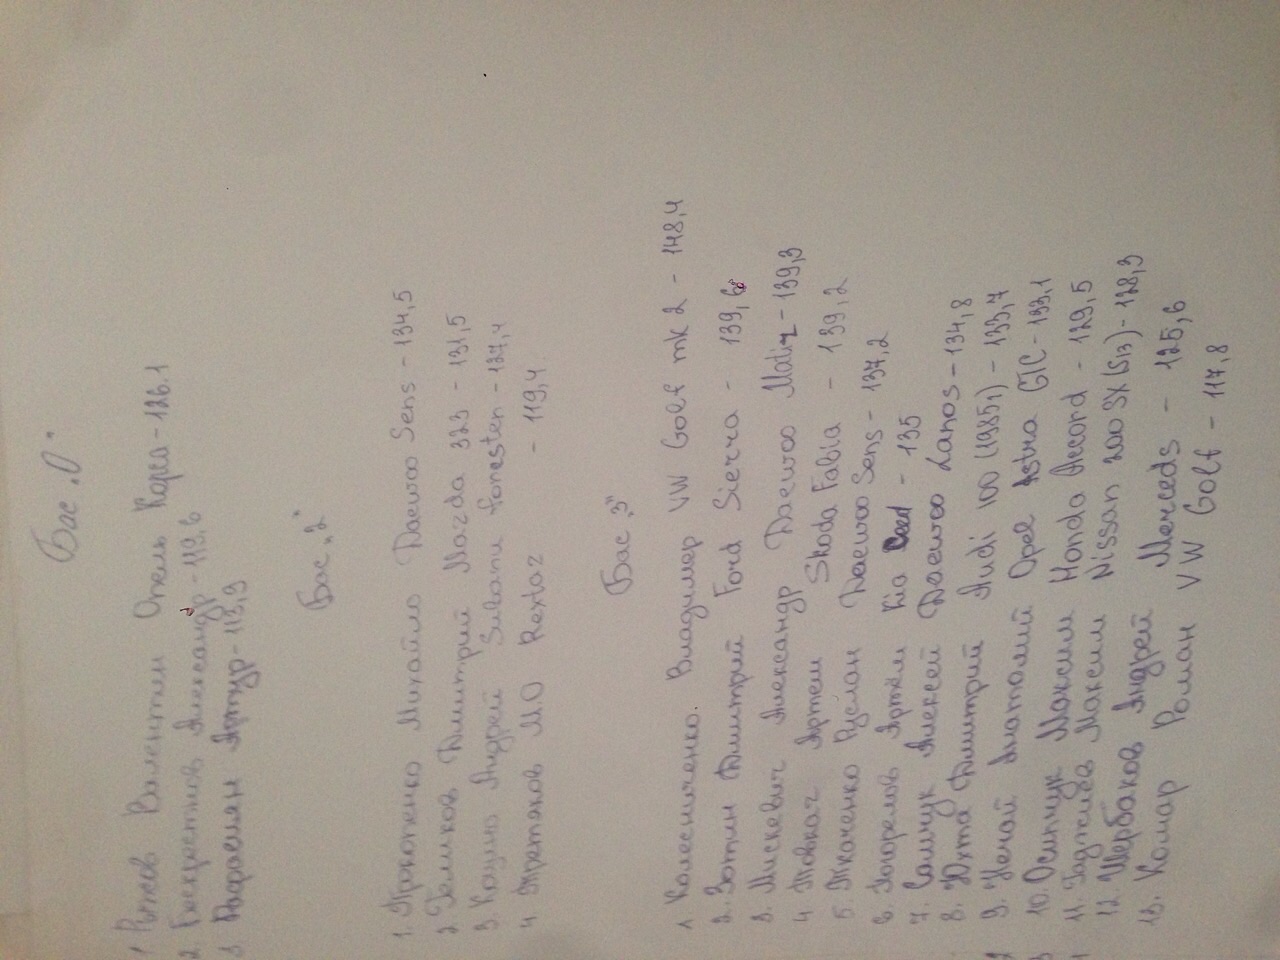 Бас „0"
1 Рыжов Валентин Опель Корса - 126.1
2. Бескустов Александр - 119,6
3 Парасиян Артур - 113,9
Бас „2"
1. Прокопенко Михайло Daewoo Sens - 134,5
2 Голиков Дмитрий Mazda 323 - 131,5
3 Кацило Андрей Subaru forester - 127,4
4 Третяков М.О Rextar - 119,4
Бас „3"
1 Колесниченко Владимер VW Golf mk 2 - 148,4
2. Зотин Дмитрий Ford Sierra - 139,6
3. Мискевич Александр Daewoo Matiz - 139,3
4 Товкач Артем Skoda Fabia - 139,2
5. Ткаченко Руслан Daewoo Sens - 137,2
6. Погорелов Артем Kia Ceed - 135
7. Самчук Алексей Daewoo Lanos - 134,8
8. Юхта Дмитрий Audi 100 (1985г) - 133,7
9. Нечай Анатолий Opel Astra GTC - 133,1
10. Осипчук Максим Honda Accord - 129,5
11. Гаджиев Максим Nissan 200 SX (S13) - 128,3
12. Щербаков Андрей Merceds - 125,6
13. Комар Роман VW Golf - 117,8